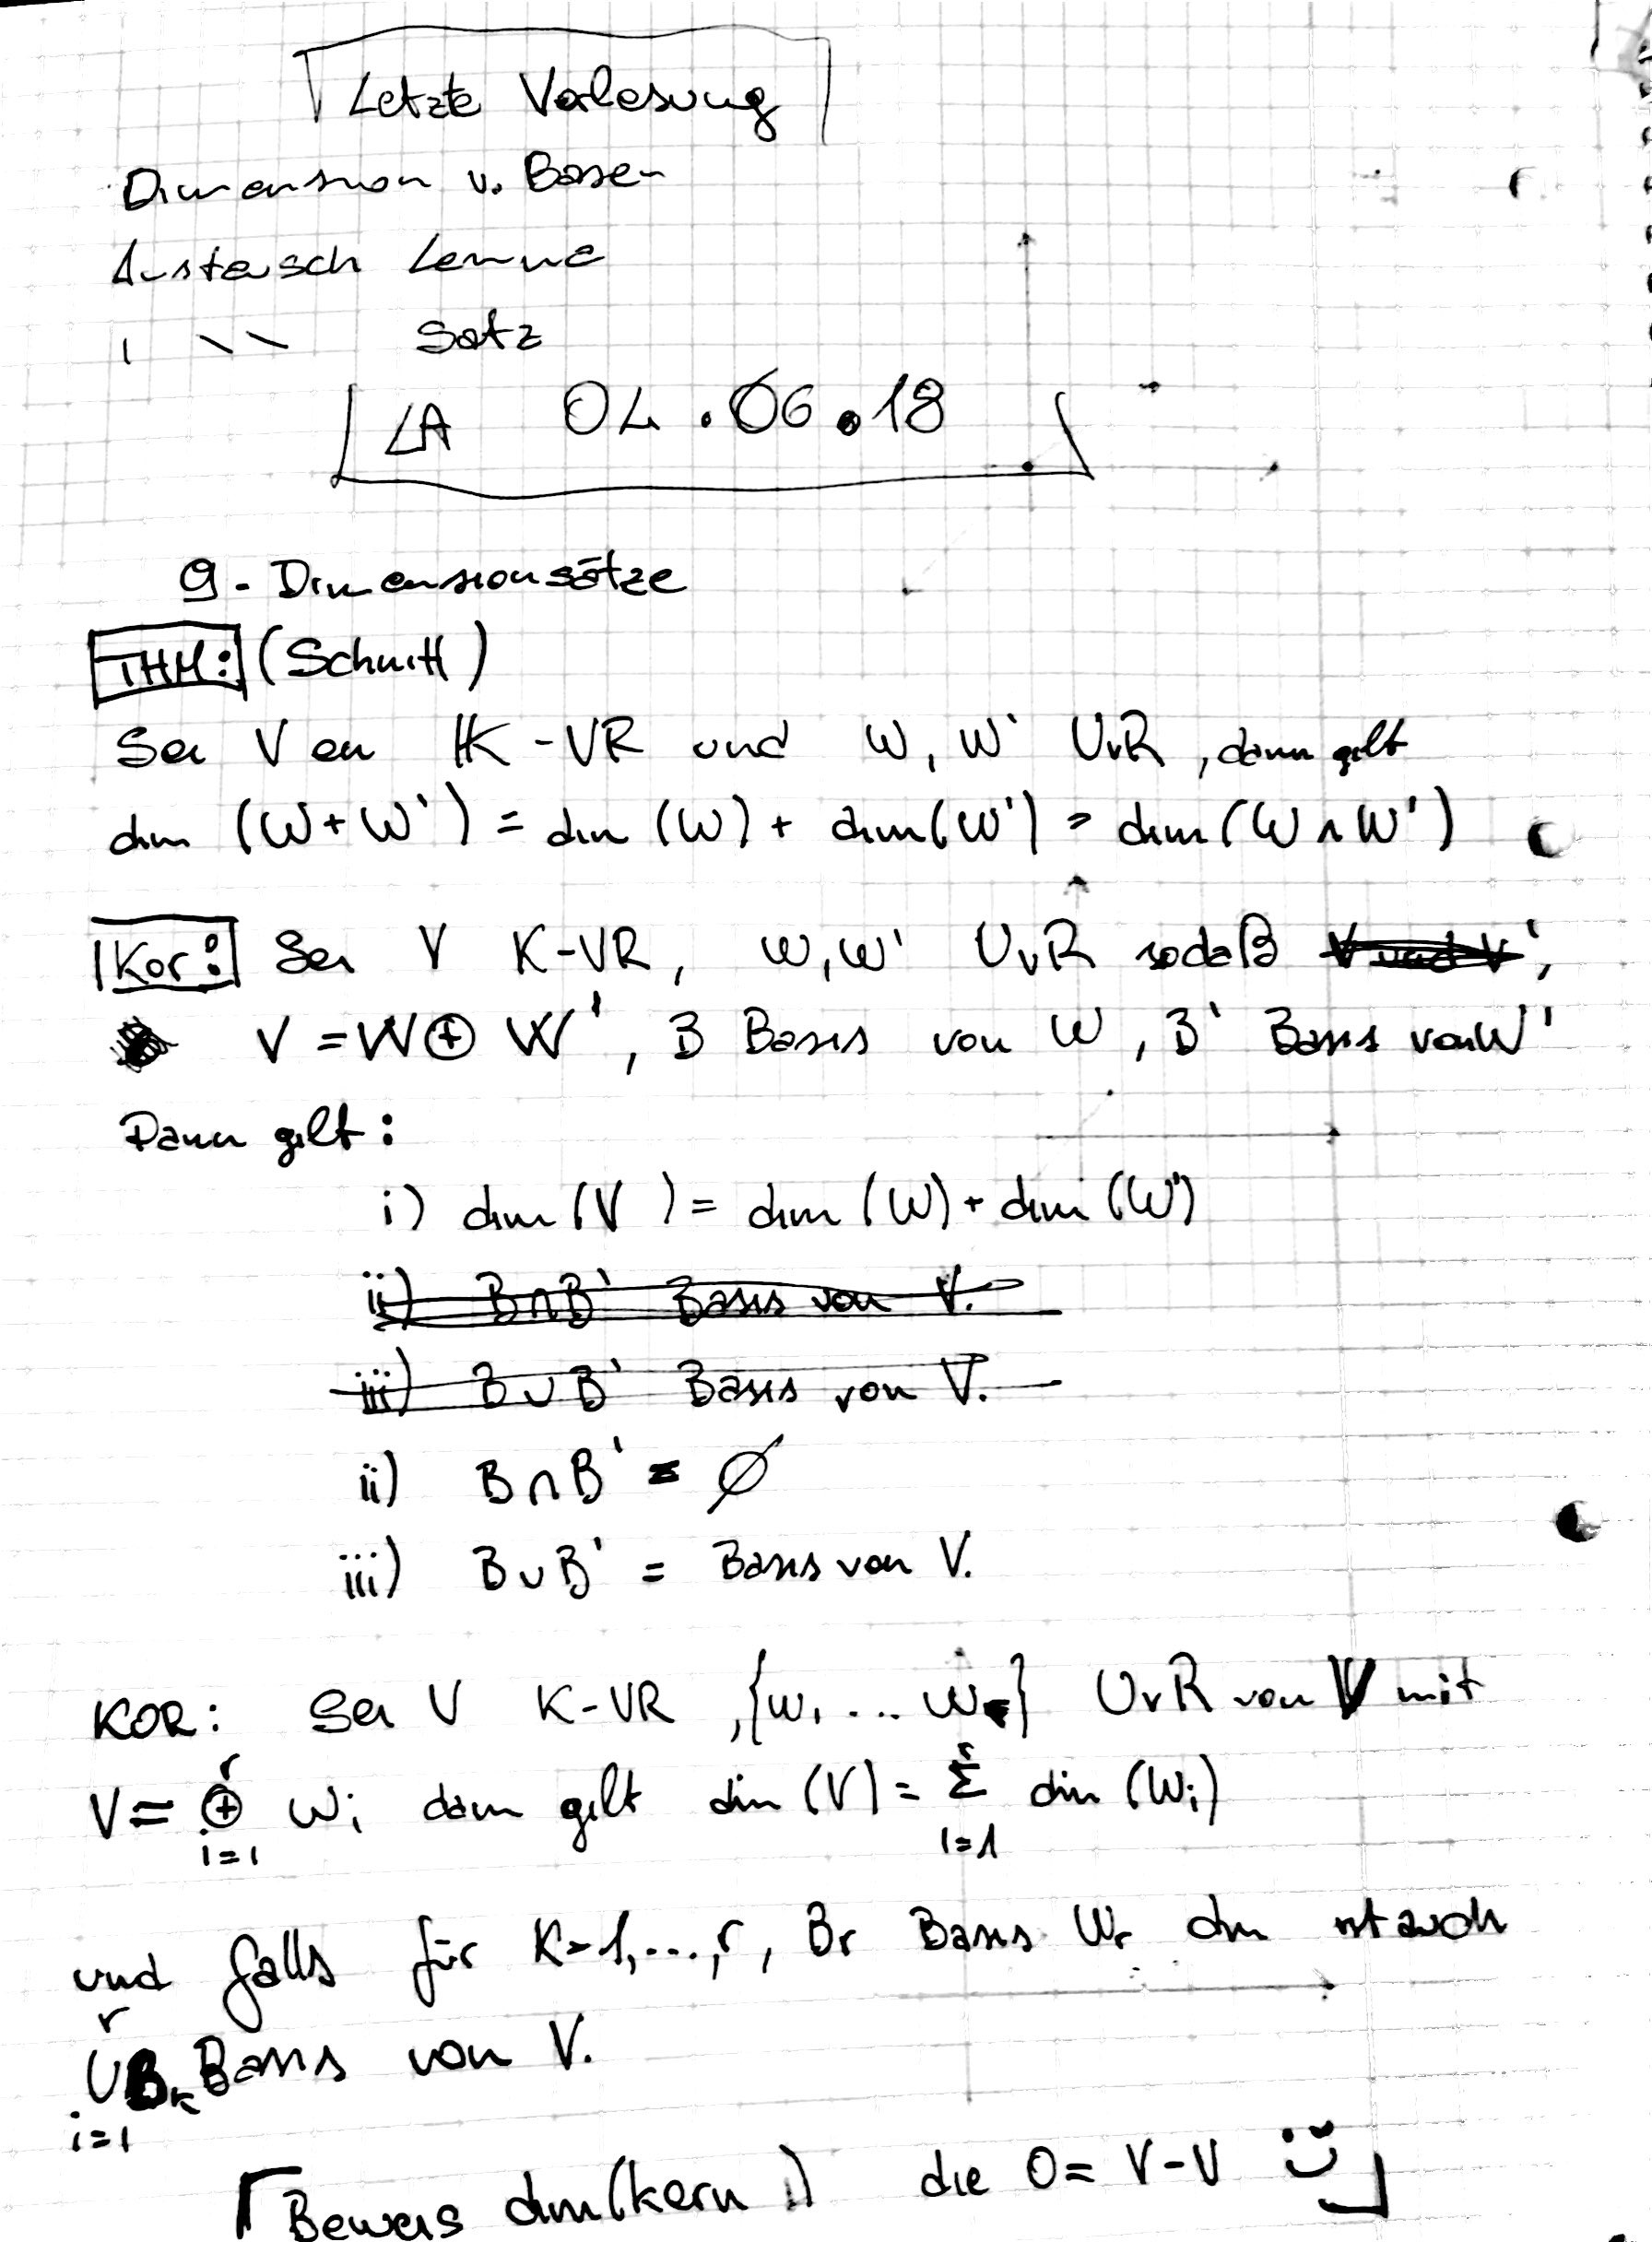 Letzte Vorlesung
Dimension v. Basen
Austausch Lemma
" Satz
LA 04.06.18
9. Dimensionsätze
THM: (Schnitt)
Sei V ein K-VR und W, W' UvR, dann gilt
dim (W+W') = dim (W) + dim(W') - dim(W∩W')
Kor: Sei V K-VR, W, W' UvR sodaß V und V',
V = W ⊕ W', B Basis von W, B' Basis von W'
Dann gilt:
i) dim (V) = dim (W) + dim (W')
ii) B∩B' Basis von V.
iii) B∪B' Basis von V.
ii) B∩B' = ∅
iii) B∪B' = Basis von V.
KOR: Sei V K-VR, {W₁ ... Wᵣ} UvR von V mit
V = ⊕ᵢ₌₁ʳ Wᵢ dann gilt dim (V) = Σᵢ₌₁ʳ dim (Wᵢ)
und falls für K=1,...,r, Br Basis Wr dn ist auch
⋃ᵢ₌₁ʳ Bₖ Basis von V.
Beweis dim(kern) die 0 = V-V